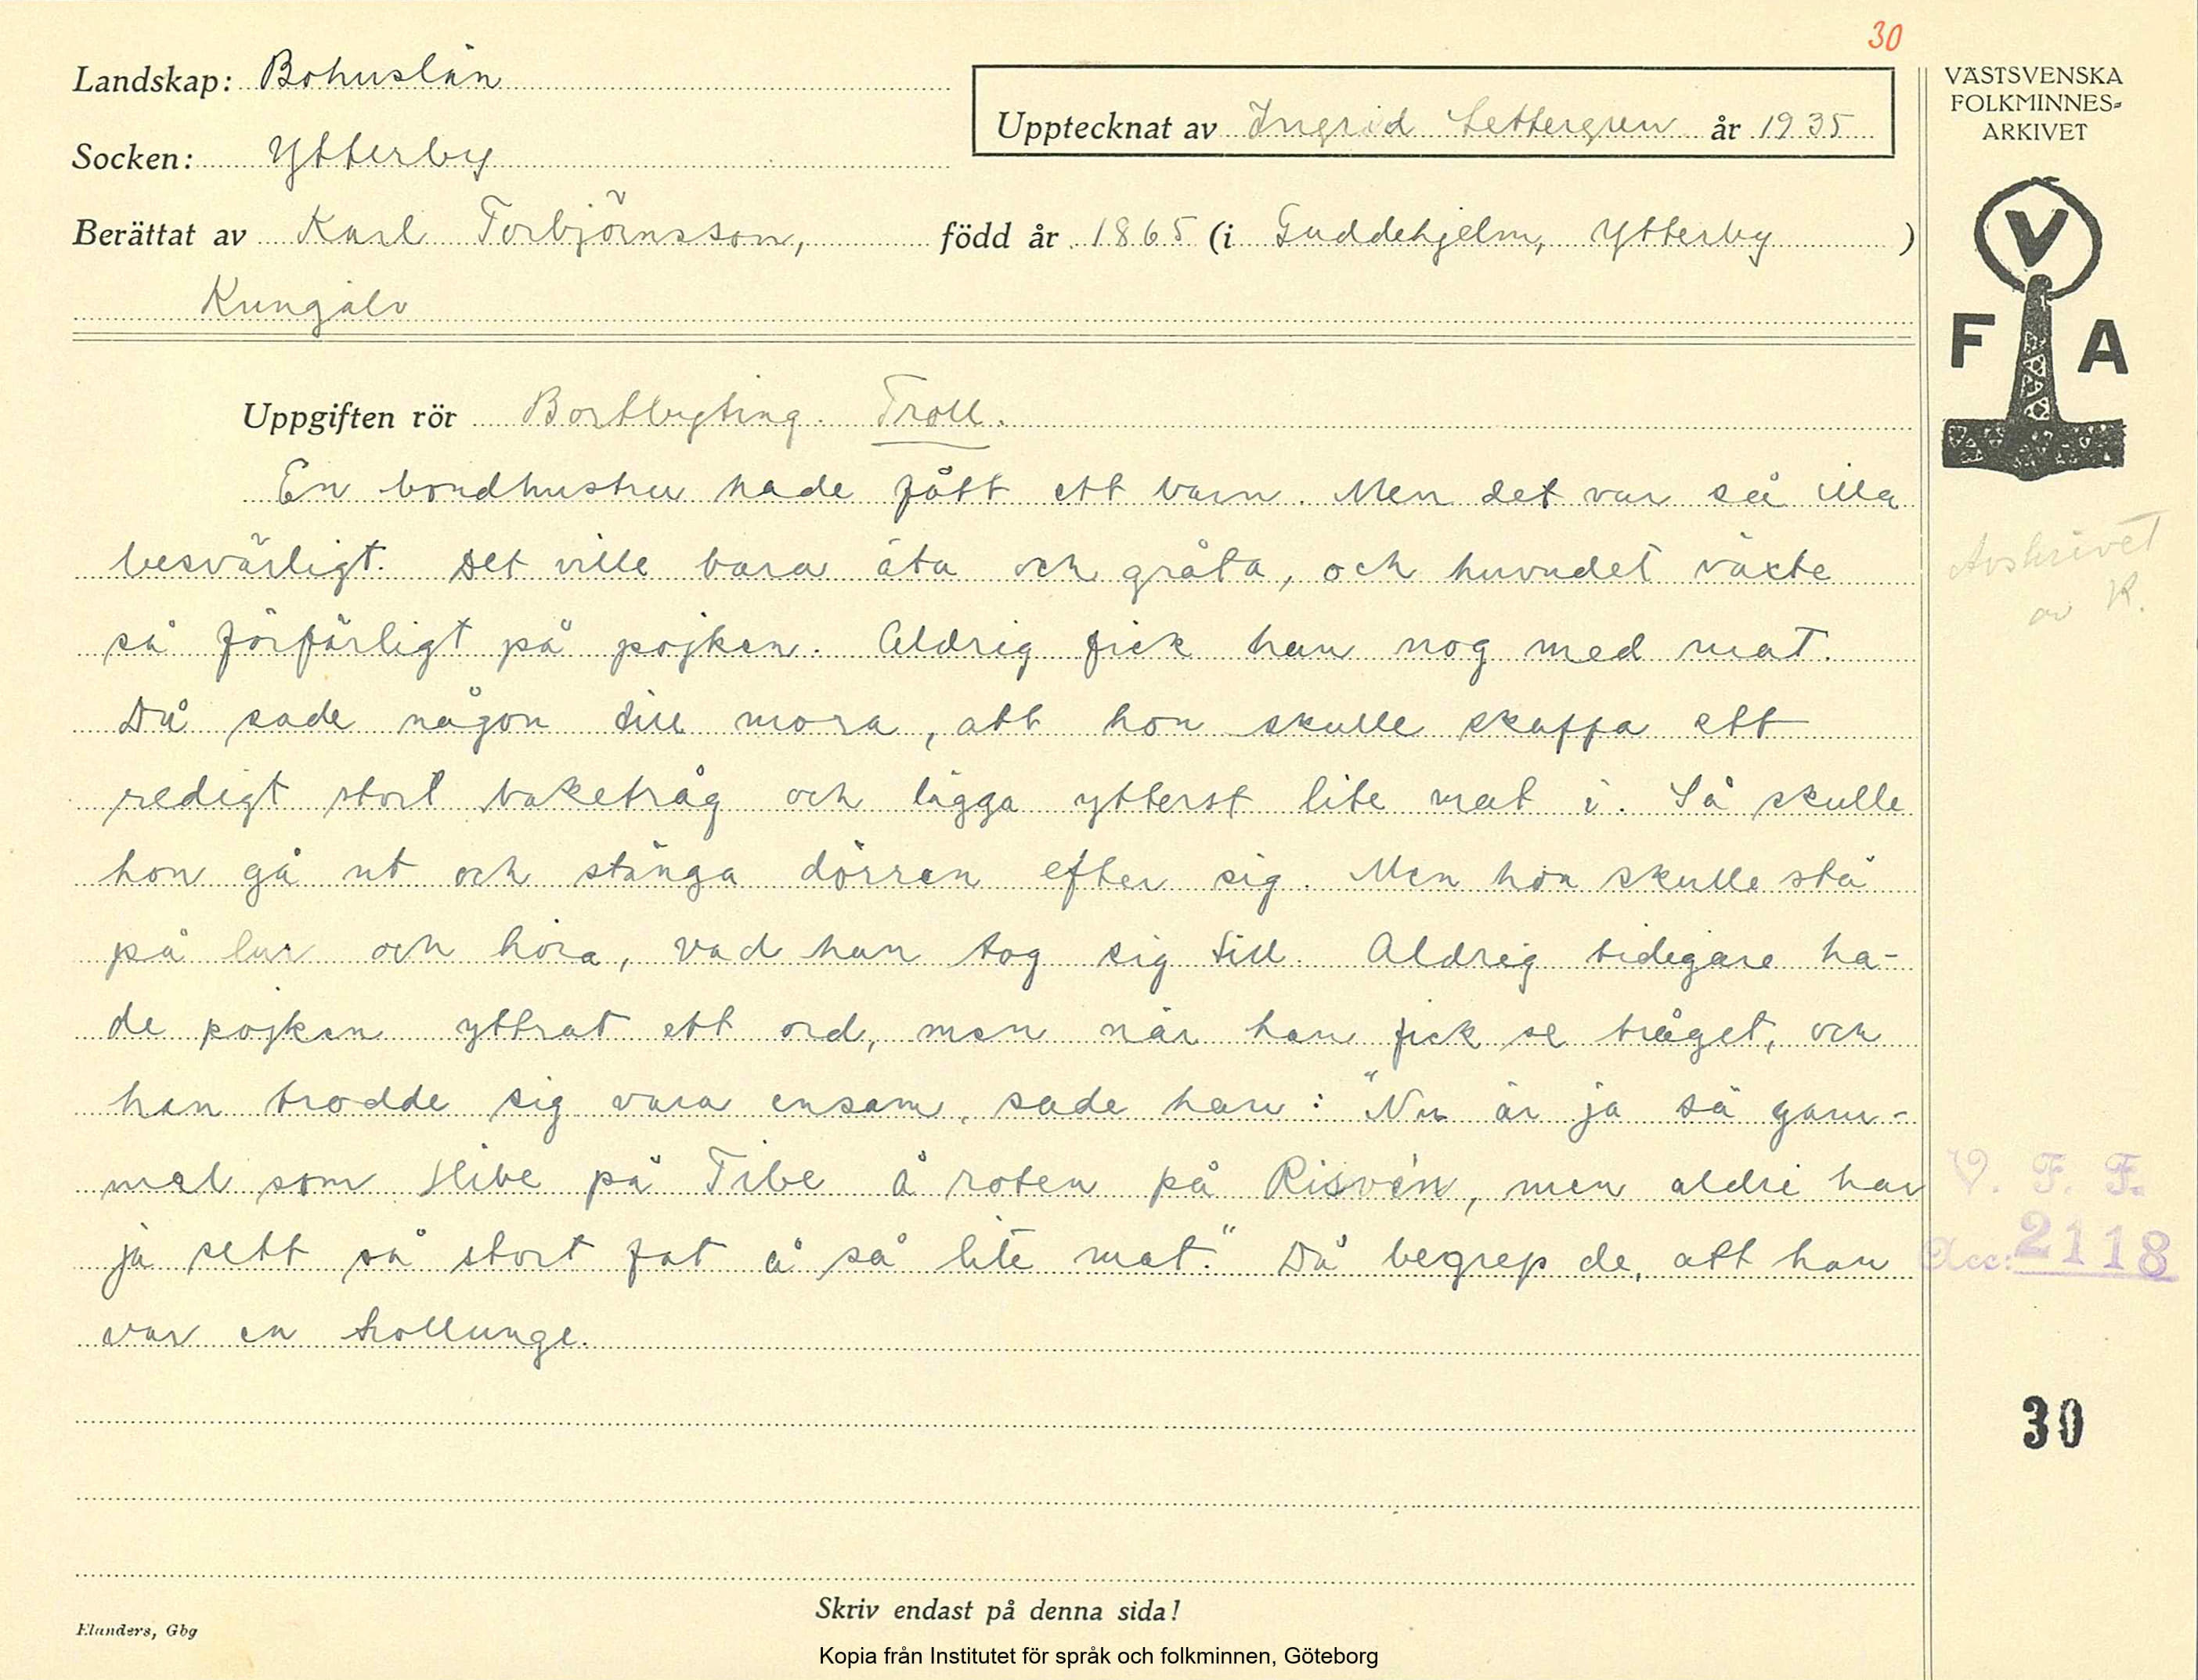 30
Landskap: Bohuslän
Upptecknat av Ingrid Settergren år 1935
Socken: Ytterby
Berättat av Karl Torbjörnsson, född år 1865 (i Guddehjelm, Ytterby )
Kungälv
Uppgiften rör Bortbyting. Troll.
En bondhustru hade fått ett barn. Men det var så illa
besvärligt. Det ville bara äta och gråta, och huvudet växte
så förfärligt på pojken. Aldrig fick han nog med mat.
Då sade någon till mora, att hon skulle skaffa ett
redigt stort baketråg och lägga ytterst lite mat i. Så skulle
hon gå ut och stänga dörren efter sig. Men hon skulle stå
på lur och höra, vad han tog sig till. Aldrig tidigare ha-
de pojken yttrat ett ord, men när han fick se tråget, och
han trodde sig vara ensam, sade han: "Nu är ja så gam-
mal som Hibe på Tibe å roten på Risvén, men aldri har
ja sett så stort fat å så lite mat." Då begrep de, att han
var en trollunge.
Skriv endast på denna sida!
Elanders, Gbg
Kopia från Institutet för språk och folkminnen, Göteborg
VÄSTSVENSKA
FOLKMINNES-
ARKIVET
V
F A
Avskrivet
av K.
V. F. F.
Acc: 2118
30